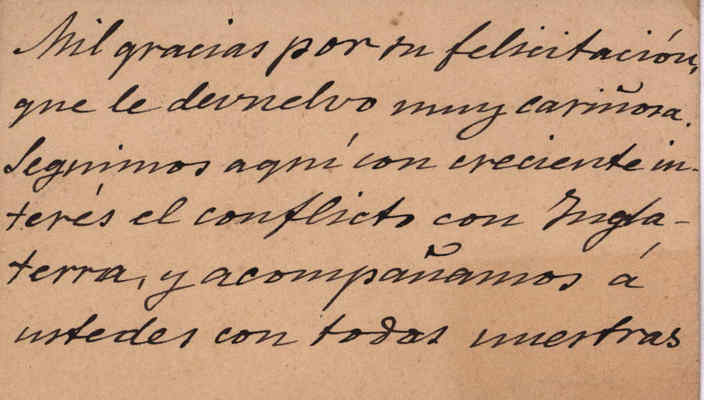 Mil gracias por su felicitación,
que le devuelvo muy cariñosa.
Seguimos aquí con creciente in-
terés el conflicto con Ingla-
terra, y acompañamos á
ustedes con todas nuestras